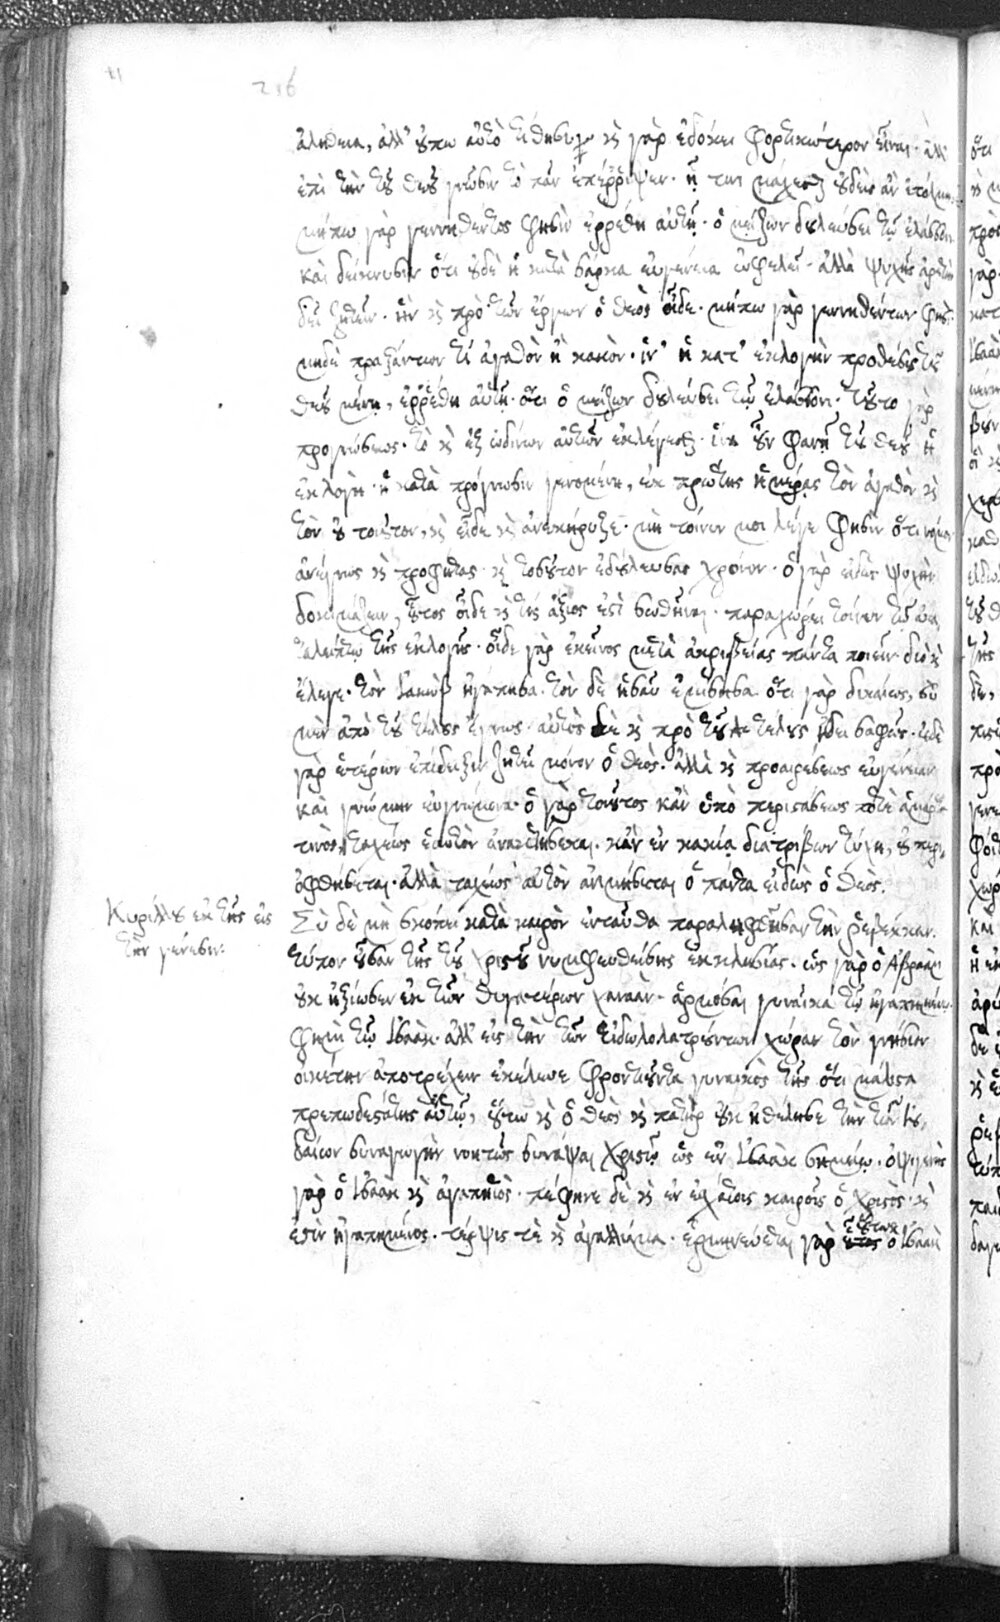 216
ἀλήθεια, ἀλλ' οὔπω αὐτὸ τίθησιν καὶ γὰρ ἐδόκει φορτικώτερον εἶναι· ἀλλ'
ἐπὶ τὴν τοῦ θεοῦ γνῶσιν τὸ πᾶν ἐπέρριψεν· ᾗ τινι μάχεσθαι οὐδεὶς ἂν ἐτόλμησε·
μήπω γὰρ γεννηθέντος φησὶν ἐρρέθη αὐτῇ· ὁ μείζων δουλεύσει τῷ ἐλάσσονι
καὶ δείκνυσιν ὅτι οὐδὲ ἡ κατὰ σάρκα εὐγένεια ὠφελεῖ· ἀλλὰ ψυχῆς ἀρετὴν
δεῖ ζητεῖν· ἣν καὶ πρὸ τῶν ἔργων ὁ θεὸς οἶδε· μήπω γὰρ γεννηθέντων φησί·
μηδὲ πραξάντων τὶ ἀγαθὸν ἢ κακόν· ἵν' ἡ κατ' ἐκλογὴν πρόθεσις τοῦ
θεοῦ μένῃ, ἐρρέθη αὐτῇ· ὅτι ὁ μείζων δουλεύσει τῷ ἐλάσσονι· τοῦτο γὰρ
προγνώσεως· τὸ καὶ ἐξ ὠδίνων αὐτῶν ἐκλέγεσθαι· ἵνα οὖν φανῇ τοῦ θεοῦ ἡ
ἐκλογὴ· ἡ κατὰ πρόγνωσιν γενομένη, ἐκ πρώτης ἡμέρας τὸν ἀγαθὸν καὶ
τὸν οὐ τοιοῦτον, καὶ εἶδε καὶ ἀνεκήρυξε· μὴ τοίνυν μοι λέγε φησὶν ὅτι νόμον
ἀνέγνως καὶ προφήτας· καὶ τοσοῦτον ἐδούλευσας χρόνον· ὁ γὰρ εἰδὼς ψυχὴν
δοκιμάζειν, οὗτος οἶδε καὶ τίς ἄξιος ἐστὶ σωθῆναι· παραχώρει τοίνυν τῷ ἀκα
ταλήπτῳ τῆς ἐκλογῆς· οἶδε γὰρ ἐκεῖνος μετὰ ἀκριβείας πάντα ποιεῖν διὸ καὶ
ἔλεγε· τὸν Ἰακὼβ ἠγάπησα· τὸν δὲ ἡσαῦ ἐμίσησα ὅτι γὰρ δικαίως, σὺ
μὲν ἀπὸ τοῦ τέλους ἔγνως· αὐτὸς δὲ καὶ πρὸ τοῦ τέλους ᾔδει σαφῶς· οὐδὲ
γὰρ ἑτέρων ἐπίδειξιν ζητεῖ μόνον ὁ θεὸς· ἀλλὰ καὶ προαιρέσεως εὐγένειαν
καὶ γνώμην εὐγνώμονα· ὁ γὰρ τοιοῦτος κἂν ὑπὸ περιστάσεως ποτὲ ἁμάρτῃ
τινος, ταχέως ἑαυτὸν ἀνακτήσεται· κἂν ἐν κακίᾳ διατρίβων τύχῃ, οὐ περι
οφθήσεται· ἀλλὰ ταχέως αὐτὸν ἀνιμήσεται ὁ πάντα εἰδὼς ὁ θεός.
Κυρίλλου ἐκ τῆς εἰς
τὴν γένεσιν:
Σὺ δέ μοι σκόπει κατὰ καιρὸν ἐνταῦθα παραληφθεῖσαν τὴν ῥεβέκκαν·
τύπον οὖσαν τῆς τοῦ χριστοῦ νυμφευθείσης ἐκκλησίας· ὡς γὰρ ὁ Ἀβραὰμ
οὐκ ἠξίωσεν ἐκ τῶν θυγατέρων χαναὰν· ἁρμόσαι γυναῖκα τῷ ἠγαπημένῳ·
φημὶ τῷ Ἰσαάκ· ἀλλ' εἰς τὴν τῶν εἰδωλολατρούντων χώραν τὸν γνήσιον
οἰκέτην ἀποτρέχειν ἐκέλευε φροντιοῦντα γυναικὸς τῆς ὅτι μάλιστα
πρεπωδεστάτης αὐτῷ, οὕτω καὶ ὁ θεὸς καὶ πατὴρ οὐκ ἠθέλησε τὴν τῶν Ἰου
δαίων συναγωγὴν νοητῶς συνάψαι Χριστῷ ὡς ἐν Ἰσαὰκ σημείῳ· ὀψιγενὴς
γὰρ ὁ Ἰσαὰκ καὶ ἀγαπητὸς· πέφηνε δὲ καὶ ἐν ἐσχάτοις καιροῖς ὁ χριστὸς· καὶ
ἐστὶν ἠγαπημένος· τέρψις τὲ καὶ ἀγαλλίαμα· ἑρμηνεύεται γὰρ οὕτως ὁ Ἰσαάκ